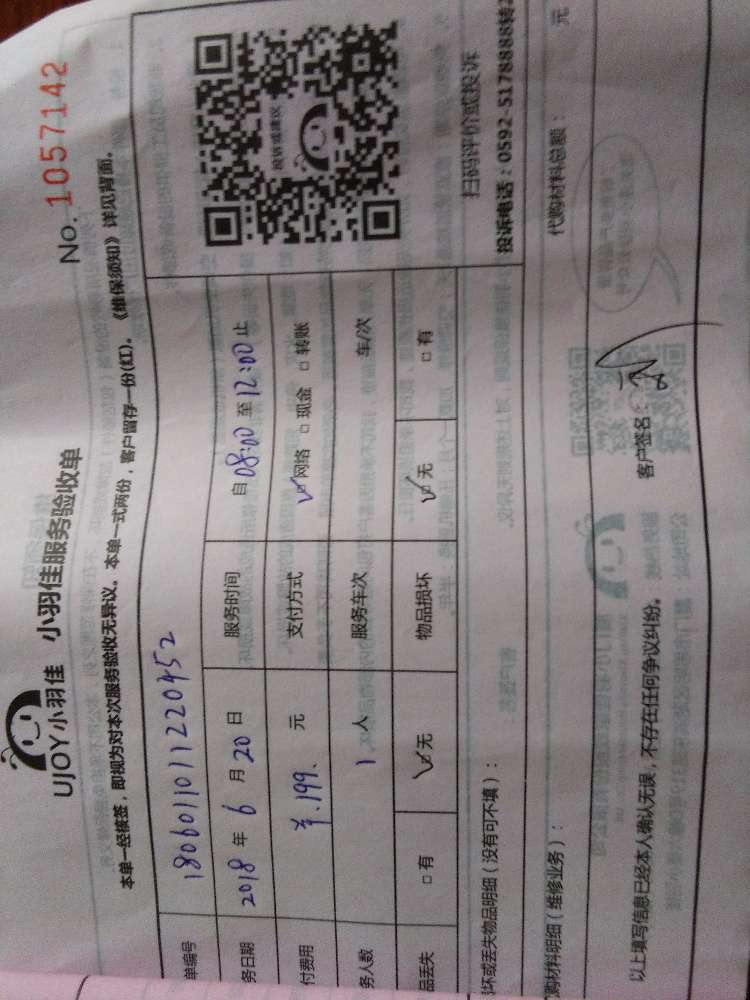 UJOY小羽佳 小羽佳服务验收单
No. 1057142
本单一经核签，即视为对本次服务验收无异议。本单一式两份，客户留存一份(红)。《维保须知》详见背面。
单编号 1806011011220452
务日期 2018 年 6 月 20 日 服务时间 自 08:00 至 12:00 止
付费用 ¥.199. 元 支付方式 ☑网络 □现金 □转账
务人数 1 人 服务车次 车/次
品丢失 □有 ☑无 物品损坏 ☑无 □有
投诉或建议
扫码评价或投诉
投诉电话：0592-5178888转2
坏或丢失物品明细（没有可不填）：
购材料明细（维修业务）： 代购材料总额： 元
以上填写信息已经本人确认无误，不存在任何争议纠纷。 客户签名：